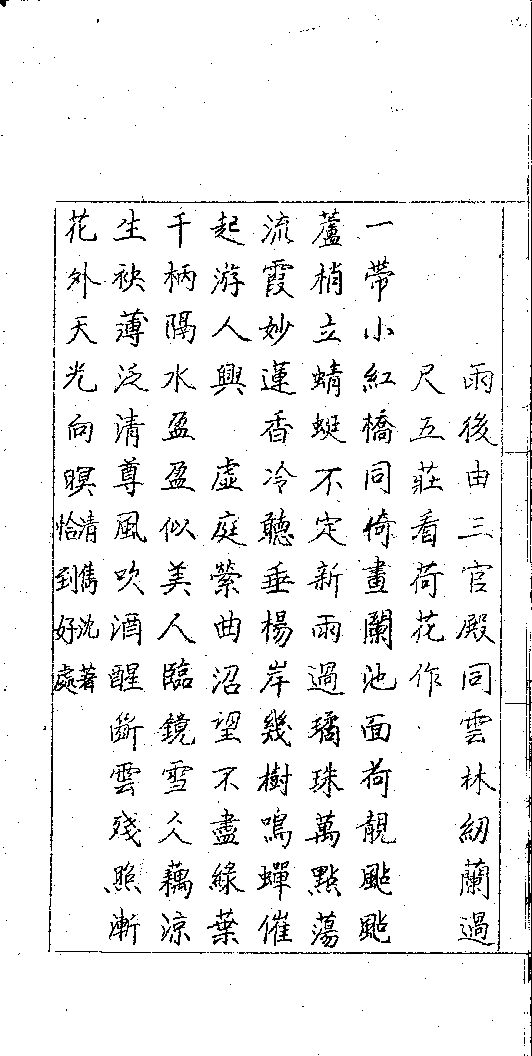 雨後由三官殿同雲林紉蘭過
尺五莊看荷花作
一帶小紅橋同倚畫闌池面荷靚颭颭
蘆梢立蜻蜓不定新雨過璚珠萬點蕩
流霞妙蓮香冷聽垂楊岸幾樹鳴蟬催
起游人興　虛庭縈曲沼望不盡綠葉
千柄隔水盈盈似美人臨鏡雪人藕涼
生袂薄泛清尊風吹酒醒斷雲殘照漸
花外天光向暝
清雋沈著
恰到好處